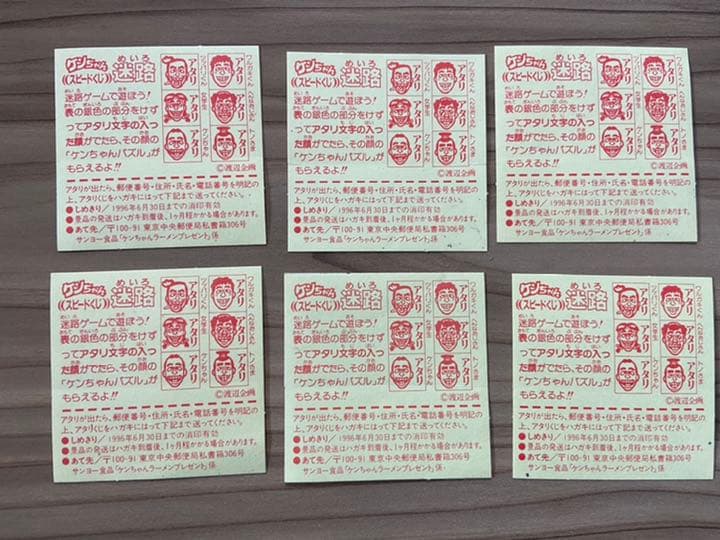 ケンちゃん
((スピードくじ))
めいろ
迷路
迷路ゲームで遊ぼう!
表の銀色の部分をけず
ってアタリ文字の入っ
た顔がでたら、その顔の
「ケンちゃんパズル」が
もらえるよ!!
アタリ
アタリ
アタリ
アタリ
アタリ
アタリ
女学生
ケンちゃん
トノさま
©渡辺企画
アタリが出たら、郵便番号・住所・氏名・電話番号を明記の
上、アタリくじをハガキにはって下記まで送ってください。
●しめきり/1996年6月30日までの消印有効
●景品の発送はハガキ到着後、1ヶ月程かかる場合があります。
●あて先/〒100-91 東京中央郵便局私書箱306号
サンヨー食品「ケンちゃんラーメンプレゼント」係
ケンちゃん
((スピードくじ))
めいろ
迷路
迷路ゲームで遊ぼう!
表の銀色の部分をけず
ってアタリ文字の入っ
た顔がでたら、その顔の
「ケンちゃんパズル」が
もらえるよ!!
アタリ
アタリ
アタリ
アタリ
アタリ
アタリ
女学生
ケンちゃん
トノさま
©渡辺企画
アタリが出たら、郵便番号・住所・氏名・電話番号を明記の
上、アタリくじをハガキにはって下記まで送ってください。
●しめきり/1996年6月30日までの消印有効
●景品の発送はハガキ到着後、1ヶ月程かかる場合があります。
●あて先/〒100-91 東京中央郵便局私書箱306号
サンヨー食品「ケンちゃんラーメンプレゼント」係
ケンちゃん
((スピードくじ))
めいろ
迷路
迷路ゲームで遊ぼう!
表の銀色の部分をけず
ってアタリ文字の入っ
た顔がでたら、その顔の
「ケンちゃんパズル」が
もらえるよ!!
アタリ
アタリ
アタリ
アタリ
アタリ
アタリ
女学生
ケンちゃん
トノさま
©渡辺企画
アタリが出たら、郵便番号・住所・氏名・電話番号を明記の
上、アタリくじをハガキにはって下記まで送ってください。
●しめきり/1996年6月30日までの消印有効
●景品の発送はハガキ到着後、1ヶ月程かかる場合があります。
●あて先/〒100-91 東京中央郵便局私書箱306号
サンヨー食品「ケンちゃんラーメンプレゼント」係
ケンちゃん
((スピードくじ))
めいろ
迷路
迷路ゲームで遊ぼう!
表の銀色の部分をけず
ってアタリ文字の入っ
た顔がでたら、その顔の
「ケンちゃんパズル」が
もらえるよ!!
アタリ
アタリ
アタリ
アタリ
アタリ
アタリ
女学生
ケンちゃん
トノさま
©渡辺企画
アタリが出たら、郵便番号・住所・氏名・電話番号を明記の
上、アタリくじをハガキにはって下記まで送ってください。
●しめきり/1996年6月30日までの消印有効
●景品の発送はハガキ到着後、1ヶ月程かかる場合があります。
●あて先/〒100-91 東京中央郵便局私書箱306号
サンヨー食品「ケンちゃんラーメンプレゼント」係
ケンちゃん
((スピードくじ))
めいろ
迷路
迷路ゲームで遊ぼう!
表の銀色の部分をけず
ってアタリ文字の入っ
た顔がでたら、その顔の
「ケンちゃんパズル」が
もらえるよ!!
アタリ
アタリ
アタリ
アタリ
アタリ
アタリ
女学生
ケンちゃん
トノさま
©渡辺企画
アタリが出たら、郵便番号・住所・氏名・電話番号を明記の
上、アタリくじをハガキにはって下記まで送ってください。
●しめきり/1996年6月30日までの消印有効
●景品の発送はハガキ到着後、1ヶ月程かかる場合があります。
●あて先/〒100-91 東京中央郵便局私書箱306号
サンヨー食品「ケンちゃんラーメンプレゼント」係
ケンちゃん
((スピードくじ))
めいろ
迷路
迷路ゲームで遊ぼう!
表の銀色の部分をけず
ってアタリ文字の入っ
た顔がでたら、その顔の
「ケンちゃんパズル」が
もらえるよ!!
アタリ
アタリ
アタリ
アタリ
アタリ
アタリ
女学生
ケンちゃん
トノさま
©渡辺企画
アタリが出たら、郵便番号・住所・氏名・電話番号を明記の
上、アタリくじをハガキにはって下記まで送ってください。
●しめきり/1996年6月30日までの消印有効
●景品の発送はハガキ到着後、1ヶ月程かかる場合があります。
●あて先/〒100-91 東京中央郵便局私書箱306号
サンヨー食品「ケンちゃんラーメンプレゼント」係